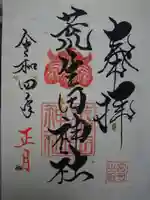 奉拝
荒生田神社
令和四年
正月